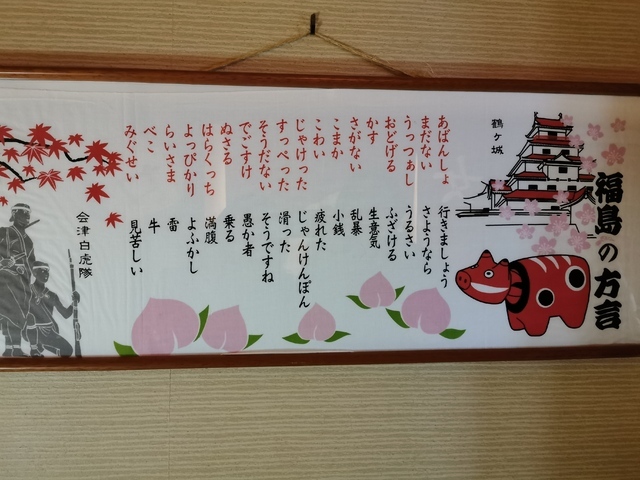 福島の方言
鶴ヶ城
あばんしょ 行きましょう
まだない さようなら
うっつぁし うるさい
おどげる ふざける
かす 生意気
さがない 乱暴
こまか 小銭
こわい 疲れた
じゃけった じゃんけんぽん
すっぺった 滑った
そうだない そうですね
でごすけ 愚か者
ぬさる 乗る
はらくっち 満腹
よっぴかり よふかし
らいさま 雷
べこ 牛
みぐせい 見苦しい
会津白虎隊